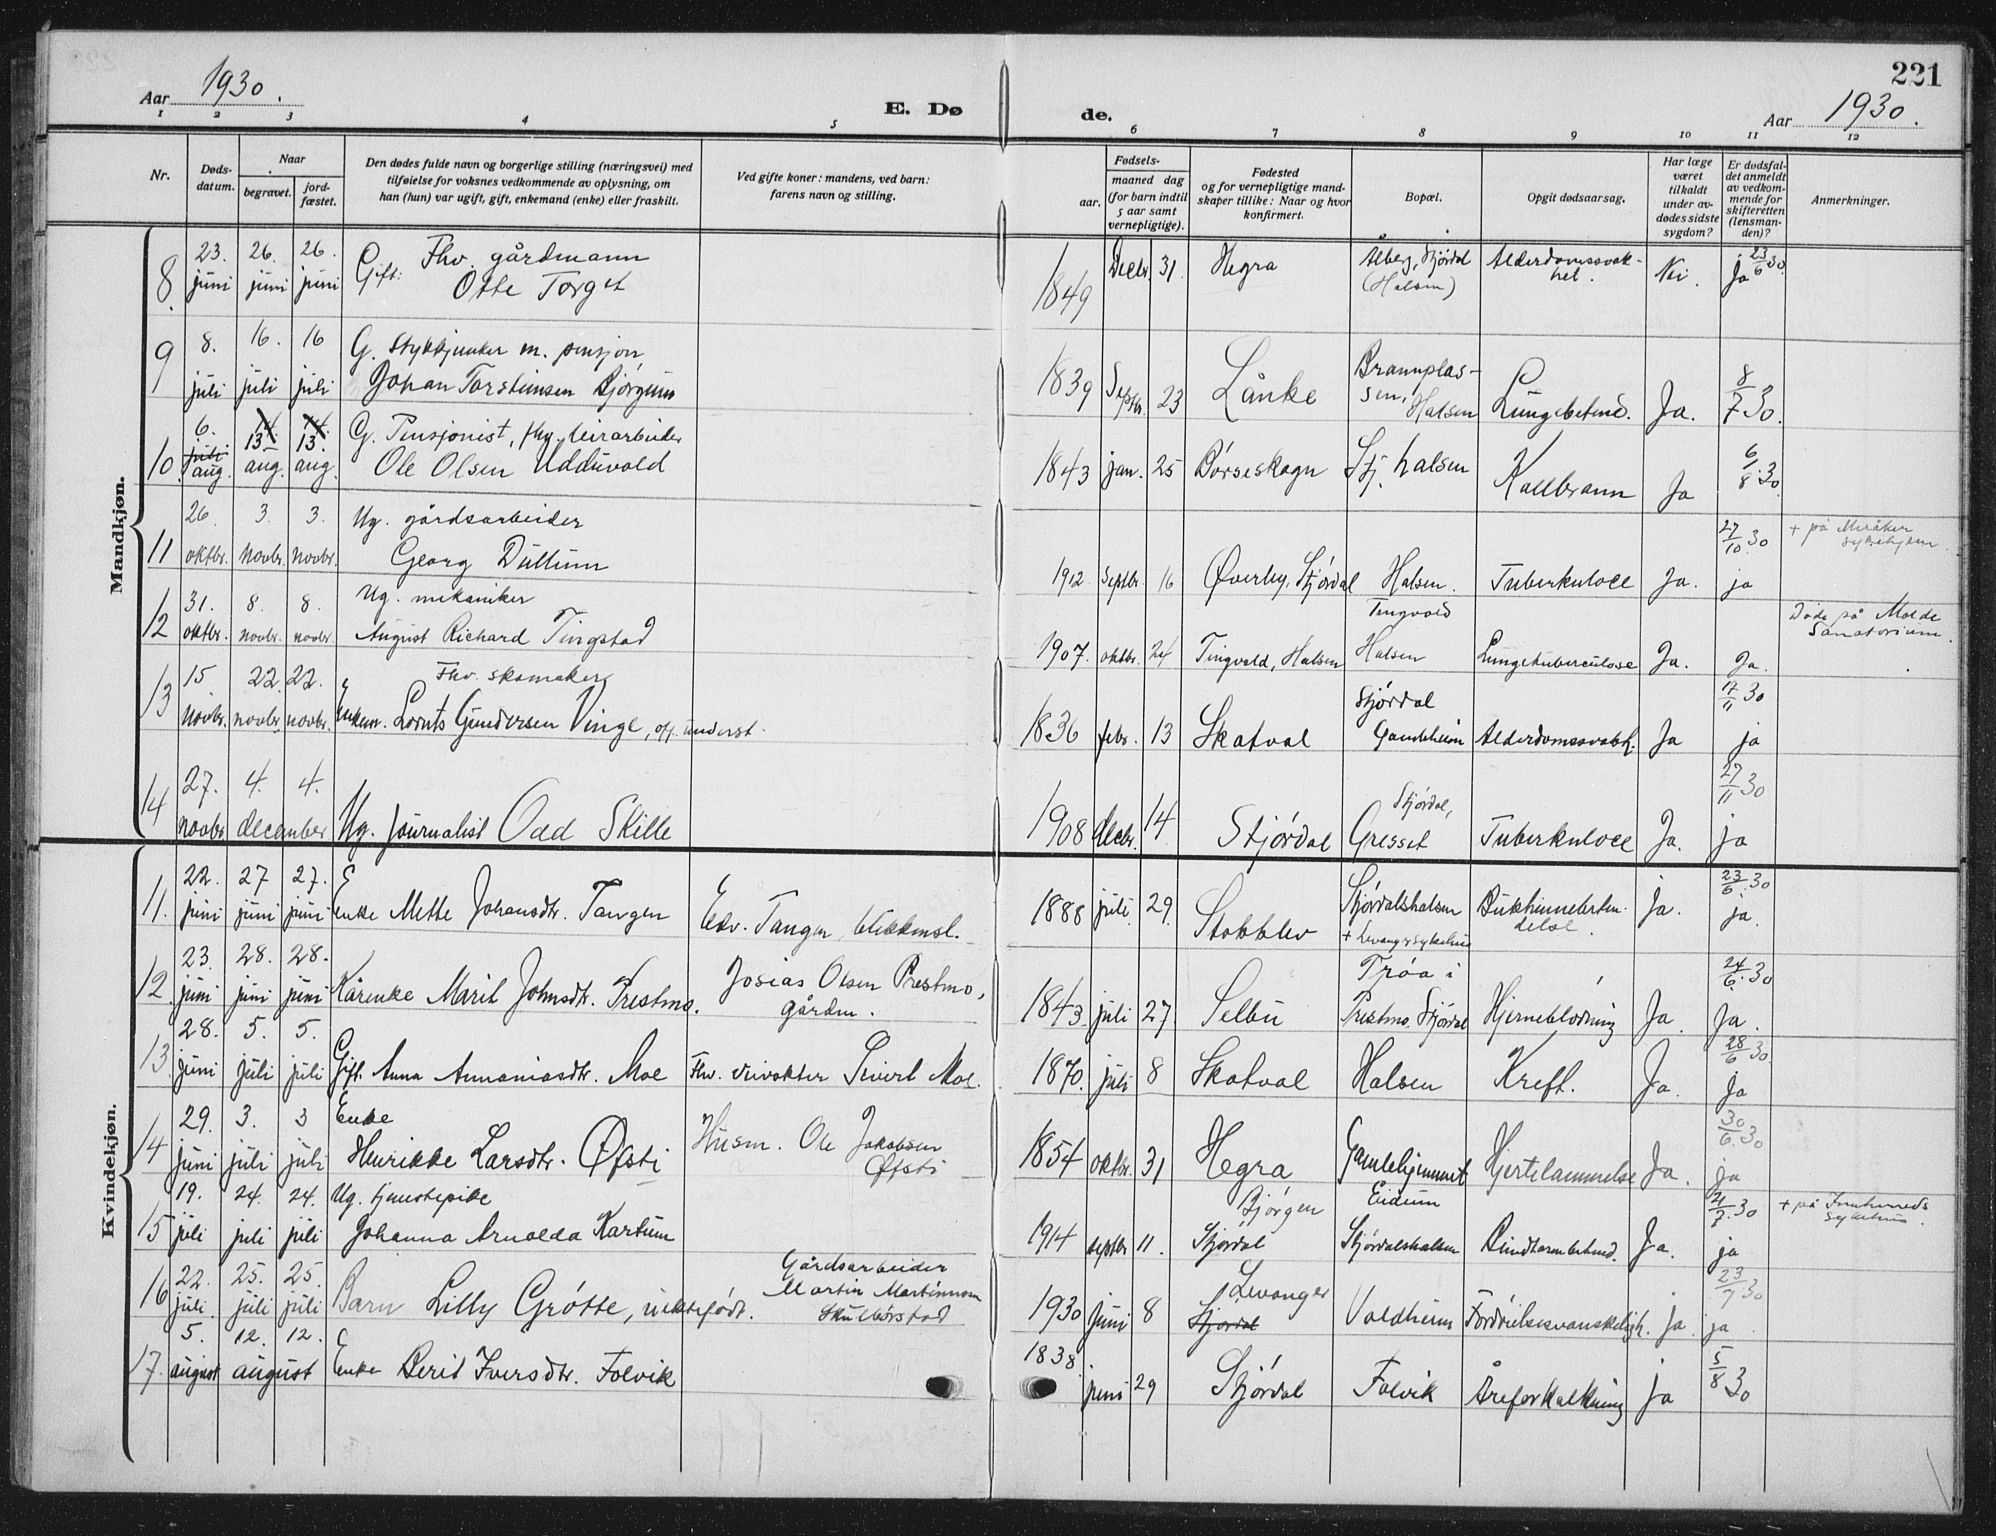 221
Aar 1930.
E. Døde.
Aar 1930.
1 2 3 4 5 6 7 8 9 10 11 12
Nr.
Døds-
datum.
Naar
begravet.
jord-
fæstet.
Den dødes fulde navn og borgerlige stilling (næringsvei) med
tilføielse for voksnes vedkommende av oplysning, om
han (hun) var ugift, gift, enkemand (enke) eller fraskilt.
Ved gifte koner: mandens, ved barn:
farens navn og stilling.
Fødsels-
aar.
maaned dag
(for barn indtil
5 aar samt
vernepligtige).
Fødested
og for vernepligtige mand-
skaper tillike: Naar og hvor
konfirmert.
Bopæl.
Opgit dødsaarsag.
Har læge
været
tilkaldt
under av-
dødes sidste
sygdom?
Er dødsfal-
det anmeldt
av vedkom-
mende for
skifteretten
(lensman-
den)?
Anmerkninger.
Mandkjøn.
8. 23. juni 26. juni 26. juni Gift. Fhv. gårdmann
Otte Torget
1849 Decbr. 31. Hegra Ålberg, Stjørdal
(Halsen) Alderdomssvak-
het. Nei. Ja 23/6 30.
9 8. juli 16. juli 16 juli G. Stykkjunker m. pensjon
Johan Torsteinsen Bjørgum
1839 Septbr. 23 Lånke Brannplas-
sen, Halsen Lungebetend. Ja. 8/7 30.
10 6. juli aug. 14. 13 aug. 14. 13. aug. G. Pensjonist, fhv. veiarbeider
Ole Olsen Udduvold
1843 jan. 25 Børseskogn Stj. halsen Kallbrann Ja 6/8 30.
11 26 oktbr. 3. novbr. 3. novbr. Ug. gårdsarbeider
Georg Dullum
1912 Septbr. 16 Øverby, Stjørdal Halsen. Tuberkulose Ja. 27/10 30 ja + på Meråker
sykehjem.
12 31. oktbr. 8. novbr. 8. novbr. Ug. mekaniker
August Richard Tingstad
1907. oktbr. 24 Tingvold, Halsen Tingvold
Halsen Lungetuberculose Ja. Ja. Døde på Molde
Sanatorium.
13 15 novbr. 22. novbr. 22. novbr. Fhv. skomaker
Enkem. Lornts Gundersen Vinge, off. underst.
1836 febr. 13 Skatval Stjørdal
Gamleheim Alderdomssvakh. Ja 17/11 30 ja
14 27. novbr. 4. 4. december Ug. journalist Odd Skille
1908 decbr. 14 Stjørdal Stjørdal,
Gresset Tuberkulose Ja. 27/11 30 ja
Kvindekjøn.
11. 22. juni 27 juni 27. juni Enke Mette Johansdtr. Tangen Edv. Tangen, blikkensl.
1888 juli 29. Stokblev Stjørdalshalsen
+ Levanger sykehus Bukhinnebeten-
delse. ja. 23/6 30 ja.
12. 23. juni 28. juni 28. juni Kårenke Marit Johnsdtr. Prestmo. Josias Olsen Prestmo,
gårdm.
1843. juli 27. Selbu Trøa i
Prestmo. Stjørdal Hjerneblødning Ja. 24/6 30 Ja.
13 28. juni 5. juli 5. juli Gift. Anna Annaniasdtr. Moe Fhv. veivokter Sivert Moe.
1870. juli 8 Skatval Halsen Kreft. Ja. 28/6 30. ja
14 29. juni 3. juli 3 juli Enke
Henrikke Larsdtr. Øfsti Husm. Ole Jakobsen
Øfsti
1854 oktbr. 31 Hegra Gamlehjemmet
Eidum Hjertelammelse Ja. 30/6 30 ja
15 19. juli 24. juli 24. juli Ug. tjenestepike
Johanna Arnolda Kartum
1914 septbr 11. Bjørgen
Stjørdal Stjørdalshalsen Blindtarmbetend. Ja. 21/7 30 ja + på Innherreds
sykehus.
16 22. juli 25. juli 25. juli Barn Lilly Grøtte, uektefødt. Gårdsarbeider
Martin Martinsen
Skulbørstad
1930 juni 8 Levanger
Stjørdal Valdheim Fordøielsesvanskeligh. ja 23/7 30 ja
17. 5. august 12. 12. august Enke Berit Iversdtr. Folvik
1838. juni 29 Stjørdal Folvik Åreforkalkning ja 5/8 30